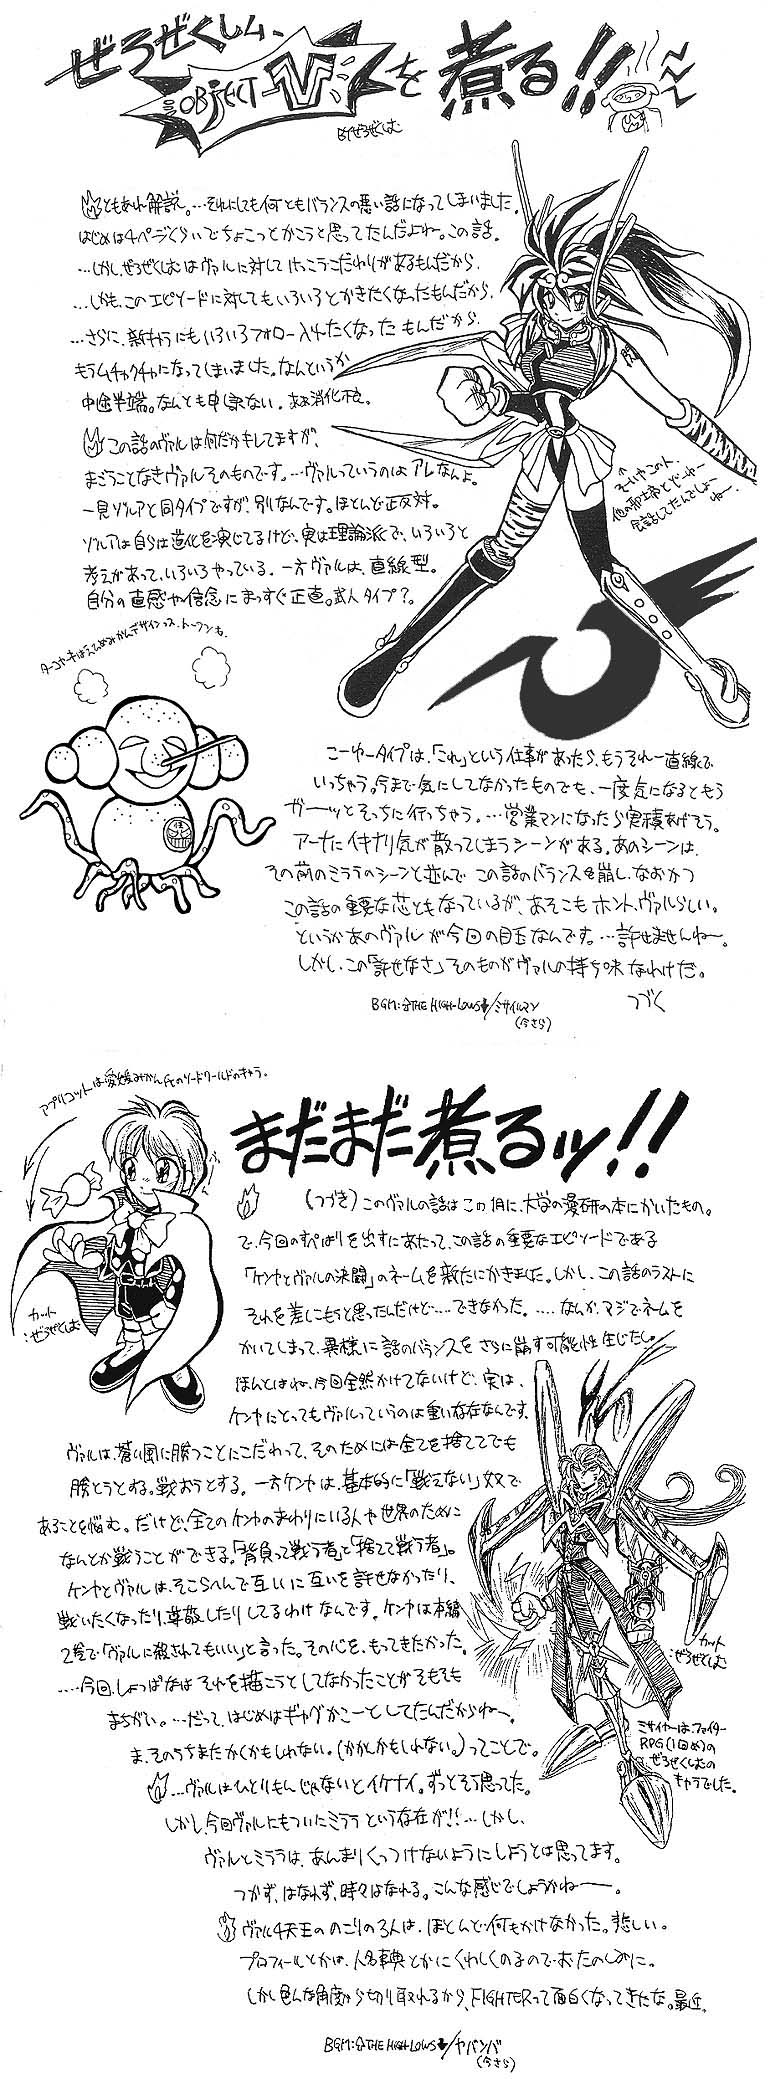 ぜろぜくしム、
OBJECT-Vを煮る!!
BYぜろぜくしむ
ともあれ解説。…それにしても何ともバランスの悪い話になってしまいました。
はじめは4ページくらいでちょこっとかこうと思ってたんだよね。この話。
…しかしぜろぜくしむはヴァルに対してけっこうこだわりがあるもんだから、
…しかも、このエピソードに対してもいろいろとかきたくなったもんだから、
…さらに、新キャラにもいろいろフォロー入れたくなったもんだから、
もうムチャクチャになってしまいました。なんというか
中途半端。なんとも申し訳ない。ああ消化不良。
この話のヴァルは何だかキレてますが、
まごうことなきヴァルそのものです。…ヴァルっていうのはアレなんよ。
一見ゾルアと同タイプですが、別なんです。ほとんど正反対。
ゾルアは自らは道化を演じてるけど、実は理論派で、いろいろと
考えがあって、いろいろやっている。一方ヴァルは、直線型。
自分の直感や信念にまっすぐ正直。武人タイプ?。
↑そーいやこの人、
他の戦士帝とどーゆー
会話してたんでしょー
ねー。
ターコヤキはえひめみかんデザインっス、トーゼンも。
こーゆータイプは、「これ」という仕事があったら、もうそれ一直線で
いっちゃう。今まで気にしてなかったものでも、一度気になるともう
ガーーッとそっちに行っちゃう。…営業マンになったら実績あげそう。
アーナにイキナリ気が散ってしまうシーンがある。あのシーンは、
その前のミララのシーンと並んでこの話のバランスを崩し、なおかつ
この話の重要な芯ともなっているが、あそこもホント、ヴァルらしい。
というかあのヴァルが今回の目玉なんです。…許せませんねー。
しかし、この「許せなさ」そのものがヴァルの持ち味なわけだ。
つづく
BGM:☆THE HIGH-LOWS↓/ミサイルマン
(今さら)
アプリコットは愛媛みかん氏のソードワールドのキャラ。
まだまだ煮るッ!!
カット
:ぜろぜくしむ
(つづき)このヴァルの話はこの1月に、大学の漫研の本にかいたもの。
で、今回のすぺしゃりを出すにあたって、この話の重要なエピソードである
「ケンヤとヴァルの決闘」のネームを新たにかきました。しかし、この話のラストに
それを差しこもうと思ったんだけど……できなかった。……なんか、マジでネームを
かいてしまって、異様に話のバランスをさらに崩す可能性生じたし。
ほんとはね、今回全然かけてないけど、実は、
ケンヤにとってもヴァルっていうのは重い存在なんです。
ヴァルは、蒼い風に勝つことにこだわって、そのためには全てを捨ててでも
勝とうとする。戦おうとする。一方ケンヤは、基本的に「戦えない」奴で
あることを悩む。だけど、全てのケンヤのまわりにいる人や世界のために
なんとか戦うことができる。「背負って戦う者」と「捨てて戦う者」。
ケンヤとヴァルは、そこらへんで互いに互いを許せなかったり、
戦いたくなったり、尊敬したりしてるわけなんです。ケンヤは本編
2巻で「ヴァルに殺されてもいい」と言った。その心を、もってきたかった。
……今回、しょっぱなはそれを描こうとしてなかったことがそもそも
まちがい。…だって、はじめはギャグかこーとしてたんだからねー。
ま、そのうちまたかくかもしれない。(かかんかもしれない。)ってことで。
カット
:ぜろぜくしむ
ミサイヤーは、ファイター
RPG(1回め)の
ぜろぜくしむの
キャラでした。
…ヴァルはひとりもんじゃないとイケナイ。ずっとそう思ってた。
しかし、今回ヴァルにもついにミララという存在が!!…しかし、
ヴァルとミララは、あんまりくっつけないようにしようとは思ってます。
つかず、はなれず、時々はなれる。こんな感じでしょうかねーー。
ヴァル4天王ののこりの3人は、ほとんど何もかけなかった。悲しい。
プロフィールとかは、人名事典とかにくわしくのるのでおたのしみに。
しかし色んな角度から切り取れるから、FIGHTERって面白くなってきたな。最近。
BGM:☆THE HIGH-LOWS↓/ヤバンバ
(今さら)